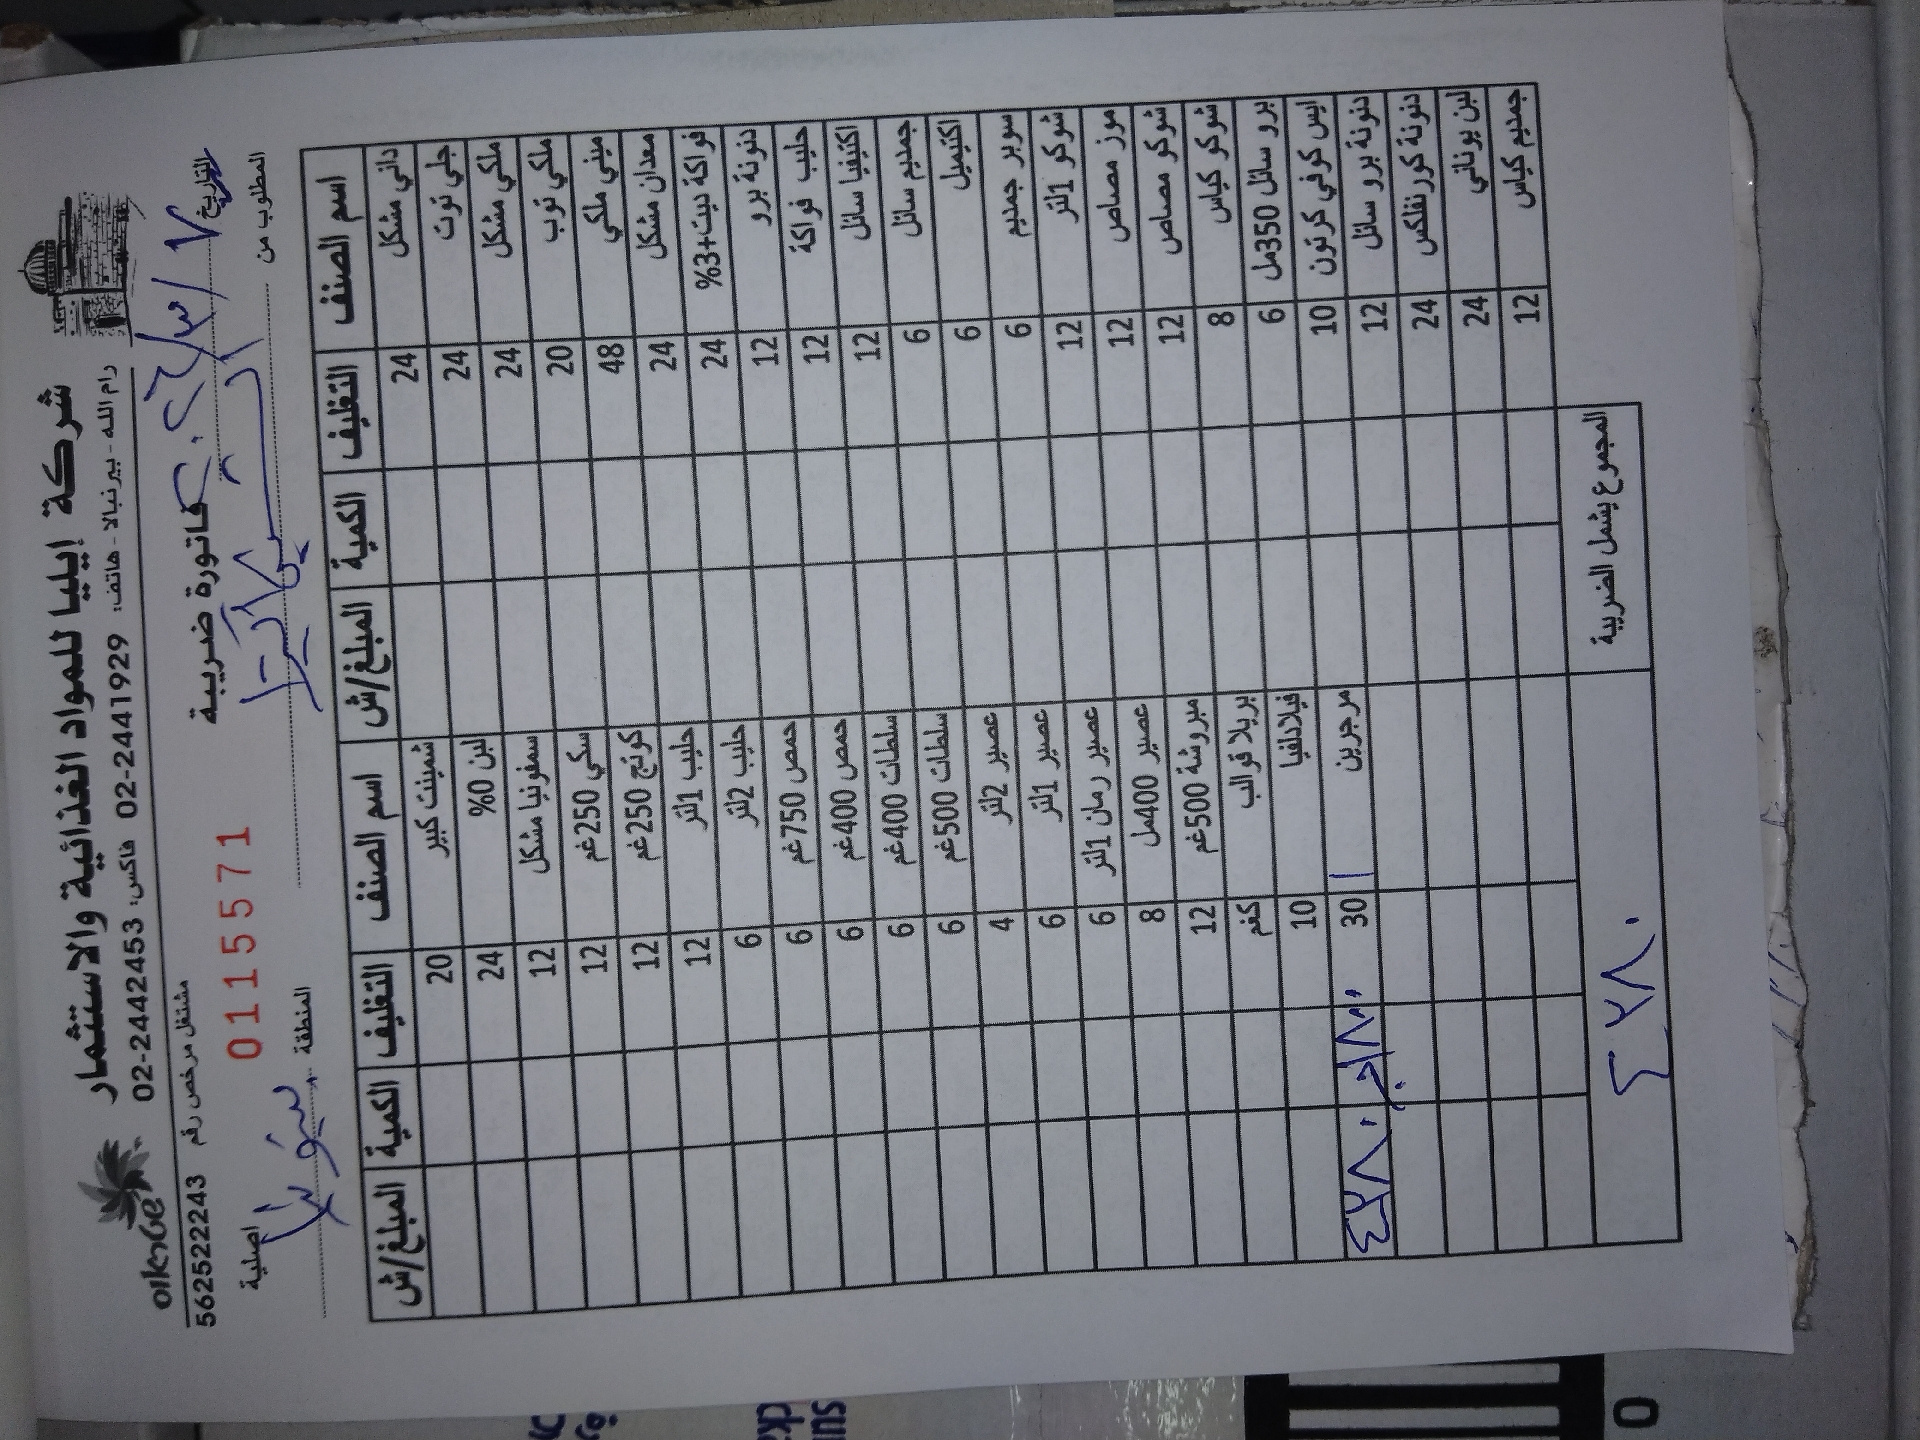 שטראוס
شركة إيليا للمواد الغذائية والاستثمار
رام الله - بيرنبالا - هاتف: 02-2441929 فاكس: 02-2442453
مشتغل مرخص رقم 562522243
التاريخ ٧ / ٣ /
فاتورة ضريبية
0115571
اصلية
المطلوب من
المنطقة
اسم الصنف التغليف الكمية المبلغ/ش اسم الصنف التغليف الكمية المبلغ/ش
داني مشكل 24 شمينت كبير 20
جلي توت 24 لبن 0% 24
ملكي مشكل 24 سمفونيا مشكل 12
ملكي توب 20 سكي 250غم 12
ميني ملكي 48 كوتج 250غم 12
معدان مشكل 24 حليب 1لتر 12
فواكة ديت+3% 24 حليب 2لتر 6
دنونة برو 12 حمص 750غم 6
حليب فواكة 12 حمص 400غم 6
اكتيفيا سائل 12 سلطات 400غم 6
جمديم سائل 6 سلطات 500غم 6
اكتيميل 6 عصير 2لتر 4
سوبر جمديم 6 عصير 1لتر 6
شوكو 1لتر 12 عصير رمان 1لتر 6
موز مصاص 12 عصير 400مل 8
شوكو مصاص 12 مبروشة 500غم 12
شوكو كياس 8 بريلا قوالب كغم
برو سائل 350مل 6 فيلادلفيا 10
ايس كوفي كرتون 10 مرجرين 30 ٤٢٨٠
دنونة برو سائل 12
دنونة كورنفلكس 24
لبن يوناني 24
جمديم كياس 12
المجموع يشمل الضريبة ٤٢٨٠